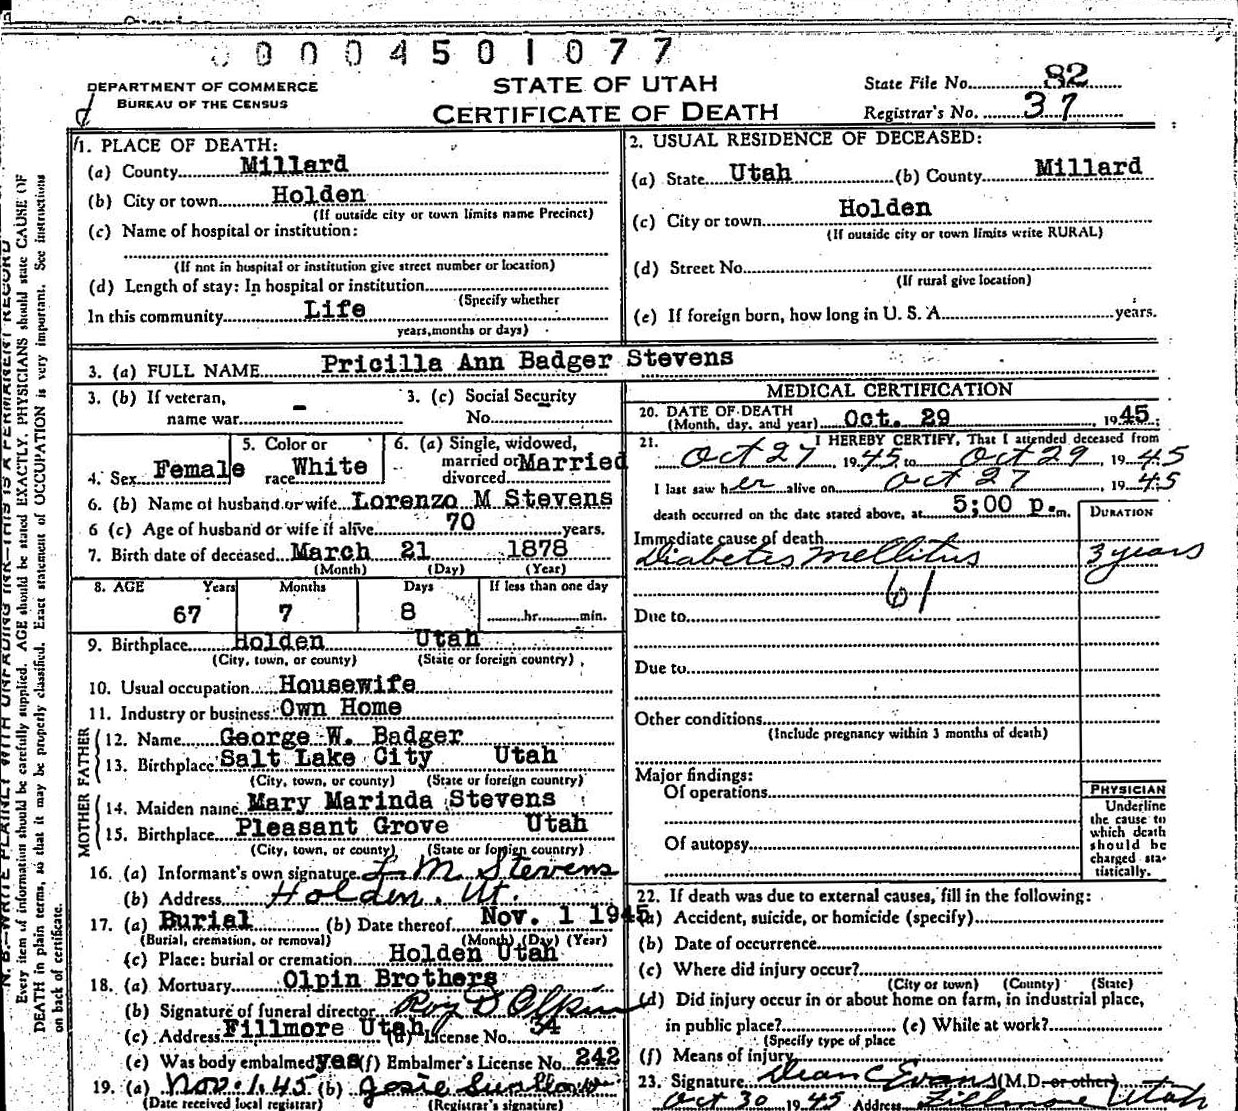 0004501077
DEPARTMENT OF COMMERCE
BUREAU OF THE CENSUS
STATE OF UTAH
CERTIFICATE OF DEATH
State File No. 82
Registrar's No. 37
1. PLACE OF DEATH:
(a) County Millard
(b) City or town Holden
(If outside city or town limits name Precinct)
(c) Name of hospital or institution:
(If not in hospital or institution give street number or location)
(d) Length of stay: In hospital or institution
(Specify whether
In this community Life
years, months or days)
2. USUAL RESIDENCE OF DECEASED:
(a) State Utah (b) County Millard
(c) City or town Holden
(If outside city or town limits write RURAL)
(d) Street No.
(If rural give location)
(e) If foreign born, how long in U. S. A. years.
3. (a) FULL NAME Pricilla Ann Badger Stevens
3. (b) If veteran, name war - 3. (c) Social Security No. -
4. Sex Female 5. Color or race White 6. (a) Single, widowed, married or divorced Married
6. (b) Name of husband or wife Lorenzo M Stevens
6 (c) Age of husband or wife if alive 70 years.
7. Birth date of deceased March 21 1878
(Month) (Day) (Year)
8. AGE Years Months Days If less than one day
67 7 8 hr. min.
9. Birthplace Holden Utah
(City, town, or county) (State or foreign country)
10. Usual occupation Housewife
11. Industry or business Own Home
FATHER
12. Name George W. Badger
13. Birthplace Salt Lake City Utah
(City, town, or county) (State or foreign country)
MOTHER
14. Maiden name Mary Marinda Stevens
15. Birthplace Pleasant Grove Utah
(City, town, or county) (State or foreign country)
16. (a) Informant's own signature L. M. Stevens
(b) Address Holden, Ut.
17. (a) Burial (b) Date thereof Nov. 1 1945
(Burial, cremation, or removal) (Month) (Day) (Year)
(c) Place: burial or cremation Holden Utah
18. (a) Mortuary Olpin Brothers
(b) Signature of funeral director Roy D Olpin
(c) Address Fillmore Utah (d) License No. 34
(e) Was body embalmed yes (f) Embalmer's License No. 242
19. (a) Nov. 1. 45 (b) Josie
(Date received local registrar) (Registrar's signature)
MEDICAL CERTIFICATION
20. DATE OF DEATH
(Month, day, and year) Oct. 29 1945
21. I HEREBY CERTIFY, That I attended deceased from
Oct 27, 1945 to Oct 29, 1945
I last saw her alive on Oct 27 1945
death occurred on the date stated above, at 5:00 p.m.
DURATION
Immediate cause of death
Diabetes mellitus 3 years
61
Due to
Due to
Other conditions
(Include pregnancy within 3 months of death)
Major findings:
Of operations
Of autopsy
PHYSICIAN
Underline
the cause to
which death
should be
charged sta-
tistically.
22. If death was due to external causes, fill in the following:
(a) Accident, suicide, or homicide (specify)
(b) Date of occurrence
(c) Where did injury occur?
(City or town) (County) (State)
(d) Did injury occur in or about home on farm, in industrial place,
in public place? (e) While at work?
(Specify type of place
(f) Means of injury
23. Signature Dean C Evans (M.D. or other)
Oct 30 1945 Address Fillmore Utah
N. B.—WRITE PLAINLY WITH UNFADING INK—THIS IS A PERMANENT RECORD
Every item of information should be carefully supplied. AGE should be stated EXACTLY. PHYSICIANS should state CAUSE OF
DEATH in plain terms, so that it may be properly classified. Exact statement of OCCUPATION is very important. See instructions
on back of certificate.